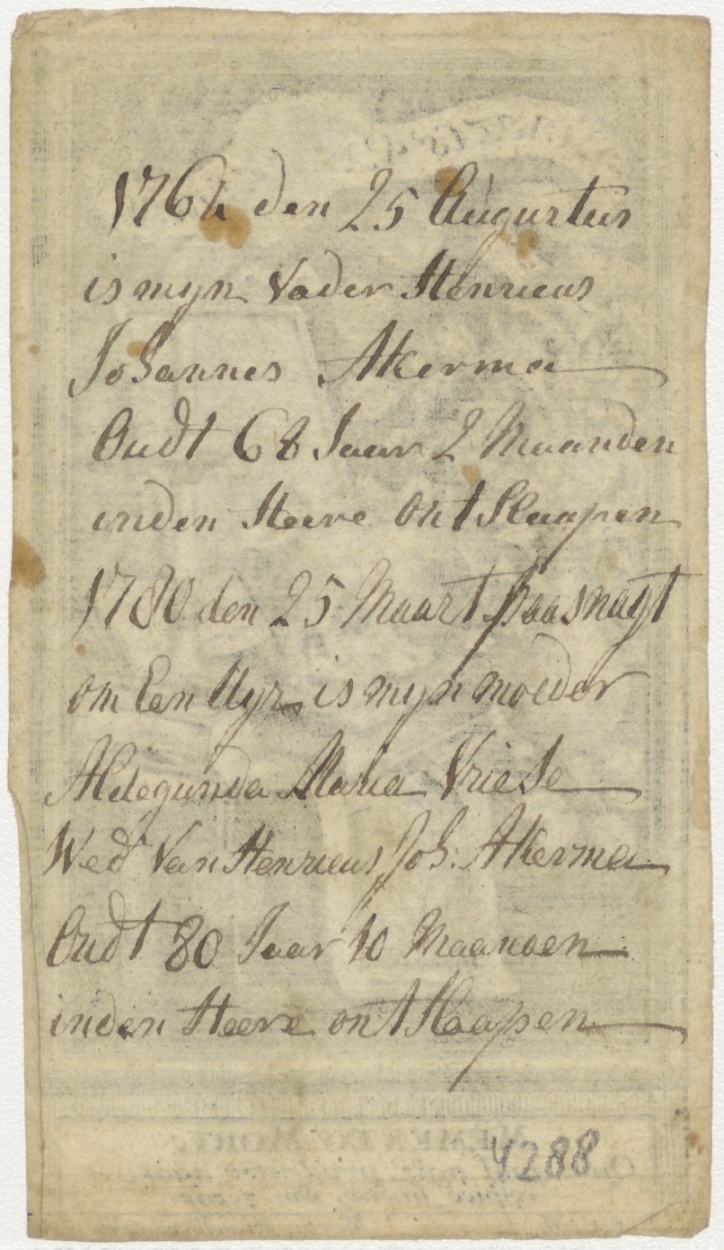 1764 den 25 Augustus
is myn Vader Henricus
Johannes Akerma
Oudt 68 Jaar 2 Maanden
inden Heere ontslaapen
1780 den 25 Maart paasnagt
om Een Uyr is myn moeder
Aldegunda Maria Vriese
Wed Van Henricus Joh. Akerma
Oudt 80 Jaar 10 Maanden
inden Heere ontslaapen
MEMENTO MORI.
4288